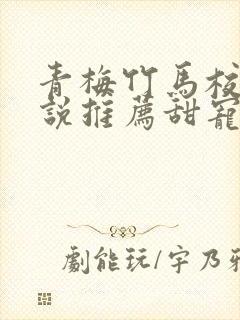 青梅竹馬校
說推薦甜寵
劇能玩/宇乃雅